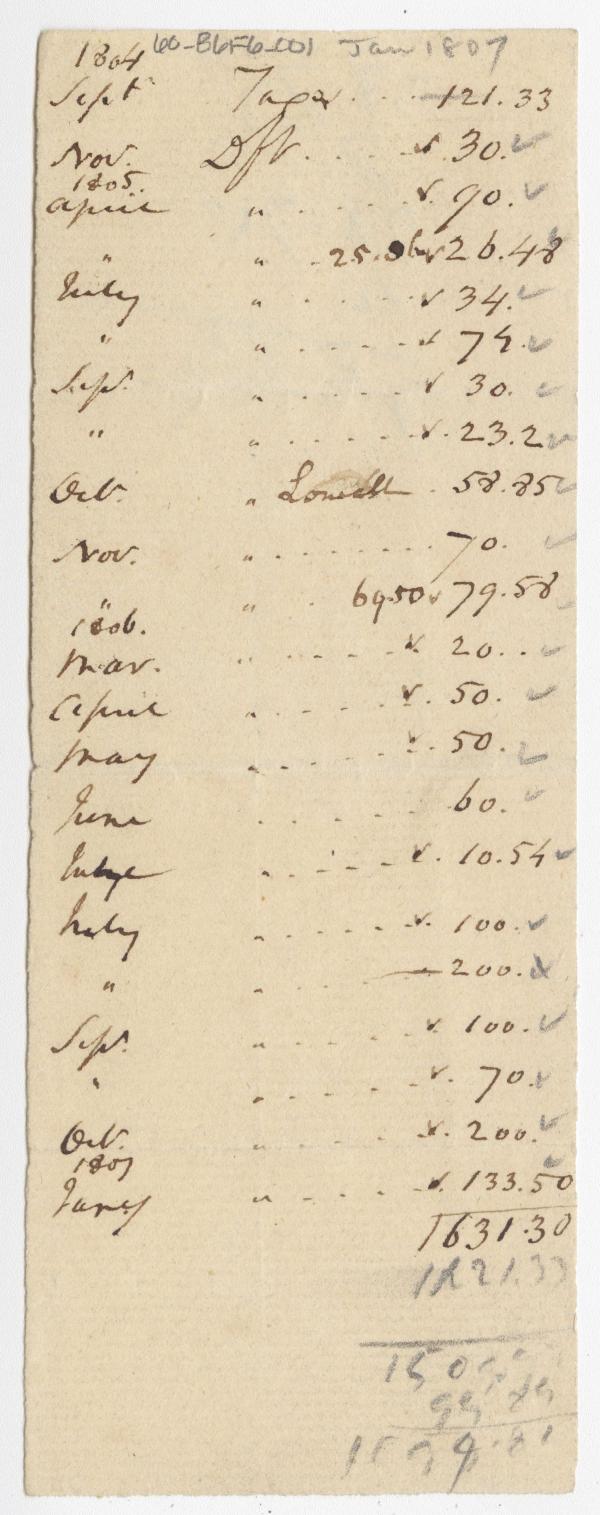 1804 60-B6F6-001 Jan 1807
Sept 121.33
Nov. Dft. 30.
1805.
April " 90.
" " 25.06 26.48
July " 34.
" " 74.
Sept. " 30.
" " 23.2
Oct. " 58.85
Nov. " 70.
" " 69.50 79.58
1806.
Mar. " 20.
April " 50.
May " 50.
June 60.
July " 10.54
July " 100.
" " 200.
Sept. " 100.
" " 70.
Oct. " 200.
1807
Jany " 133.50
1631.30